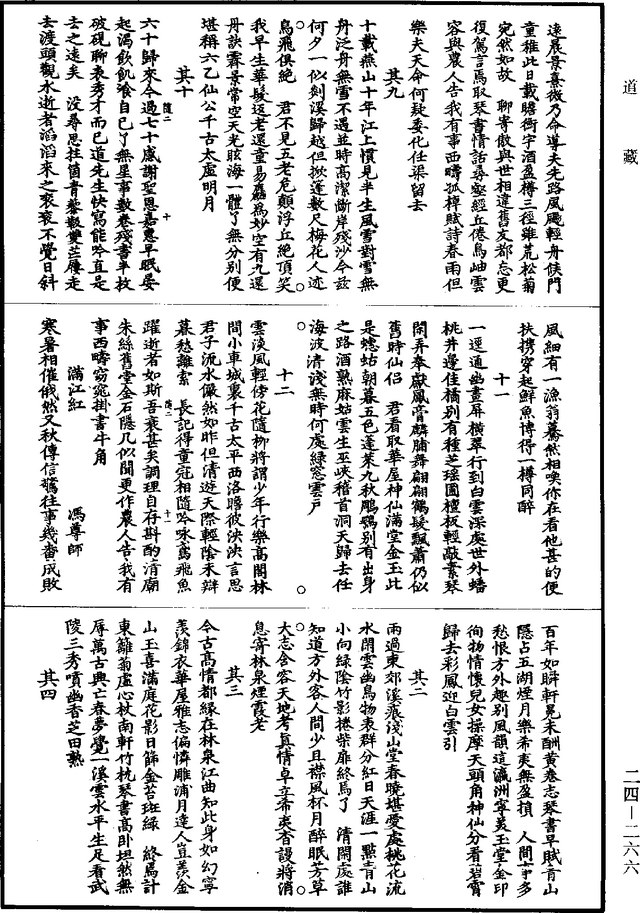 道藏
遠晨景熹微乃命導夫先路風颺輕舟候門
童稚此日載瞻衡宇酒盈樽三徑雖荒松菊
宛然如故　聊寄傲與世相違舊友都忘更
復駕言焉取琴書情話尋壑經丘倦鳥岫雲
容與農人告我有事西疇孤棹賦詩春雨但
樂夫天命何疑委化任梁留去
其九
十載燕山十年江上慣見半生風雪對雪無
舟泛舟無雪不遇並時高潔斷岸殘沙今茲
何夕一似剡溪歸越但掀蓬數尺梅花人迹
鳥飛俱絕　君不見五老危顛浮丘絕頂笑
我早生華髮返老還童易麤為妙空有九還
丹訣霽景常空天光眩海一體了無分別便
堪稱六乙仙公千古太虛明月
其十
隨二　十
六十歸來今過七十感謝聖恩嘉惠早眠晏
起渴飲飢飡自己了無星事數卷殘書半枚
破硯聊表秀才而已道先生快寫能吟直是
去之遠矣　沒尋思拄箇青藜數雙芒屨走
去渡頭觀水逝者滔滔來之衮衮不覺日斜
風細有一漁翁驀然相喚你在看他甚的便
扶携穿起鮮魚博得一樽同醉
十一
一逕通幽畫屏橫翠行到白雲深處世外蟠
桃井邊佳橘別有種芝瑤圃檀板輕敲素琴
閑弄奉獻鳳膏麟脯舞翩翩鶴髮飄蕭仍似
舊時仙侶　君看取華屋神仙滿堂金玉此
是蟪蛄朝暮五色蓬萊九秋鵰鶚別有出身
之路酒熟麻姑雲生巫峽稽首洞天歸去任
海波清淺無時何處綠窓雲戶
十二
雲淡風輕傍花隨柳將謂少年行樂高閣林
間小車城裏千古太平西洛瞻彼泱泱言思
君子流水儼然如昨但清遊天際輕陰未辯
暮愁離索　長記得童冠相隨吟咏鳶飛魚
隨二　十一
躍逝者如斯吾衰甚矣調理自存斟酌清廟
朱絲舊堂金石隱几似聞更作農人告我有
事西疇窈窕掛書牛角
滿江紅　馮尊師
寒暑相催俄然又秋傳信驚往事幾番成敗
百年如瞬軒冕未酬黃卷志琴書早賦青山
隱占五湖煙月樂希夷無盈損　人間事多
愁恨方外趣別風韻這瀛洲寧羨玉堂金印
徇物情懷兒女操摩天頭角神仙分看碧霄
歸去彩鳳迎白雲引
其二
雨過東郊溪痕淺山堂春曉堪愛處桃花流
水閉雲幽鳥物表群分紅日天涯一點青山
小向綠陰竹影捲柴扉終焉了　清閑處誰
知道方外客人間少且襟風杯月醉眠芳草
大志含容天地考真情卓立希夷杳謾將消
息寄林泉煙霞老
其三
今古高情都緣在林泉江曲知此身如幻寧
羨錦衣華屋雅志偏憐雕浦月達人豈羨金
山玉喜滿庭花影日篩金苔斑綠　終焉計
東籬菊虛心杖南軒竹枕琴書高臥坦然無
辱萬古興亡春夢覺一溪雲水平生足看武
陵三秀噴幽香芝田熟
其四
二四—二六六